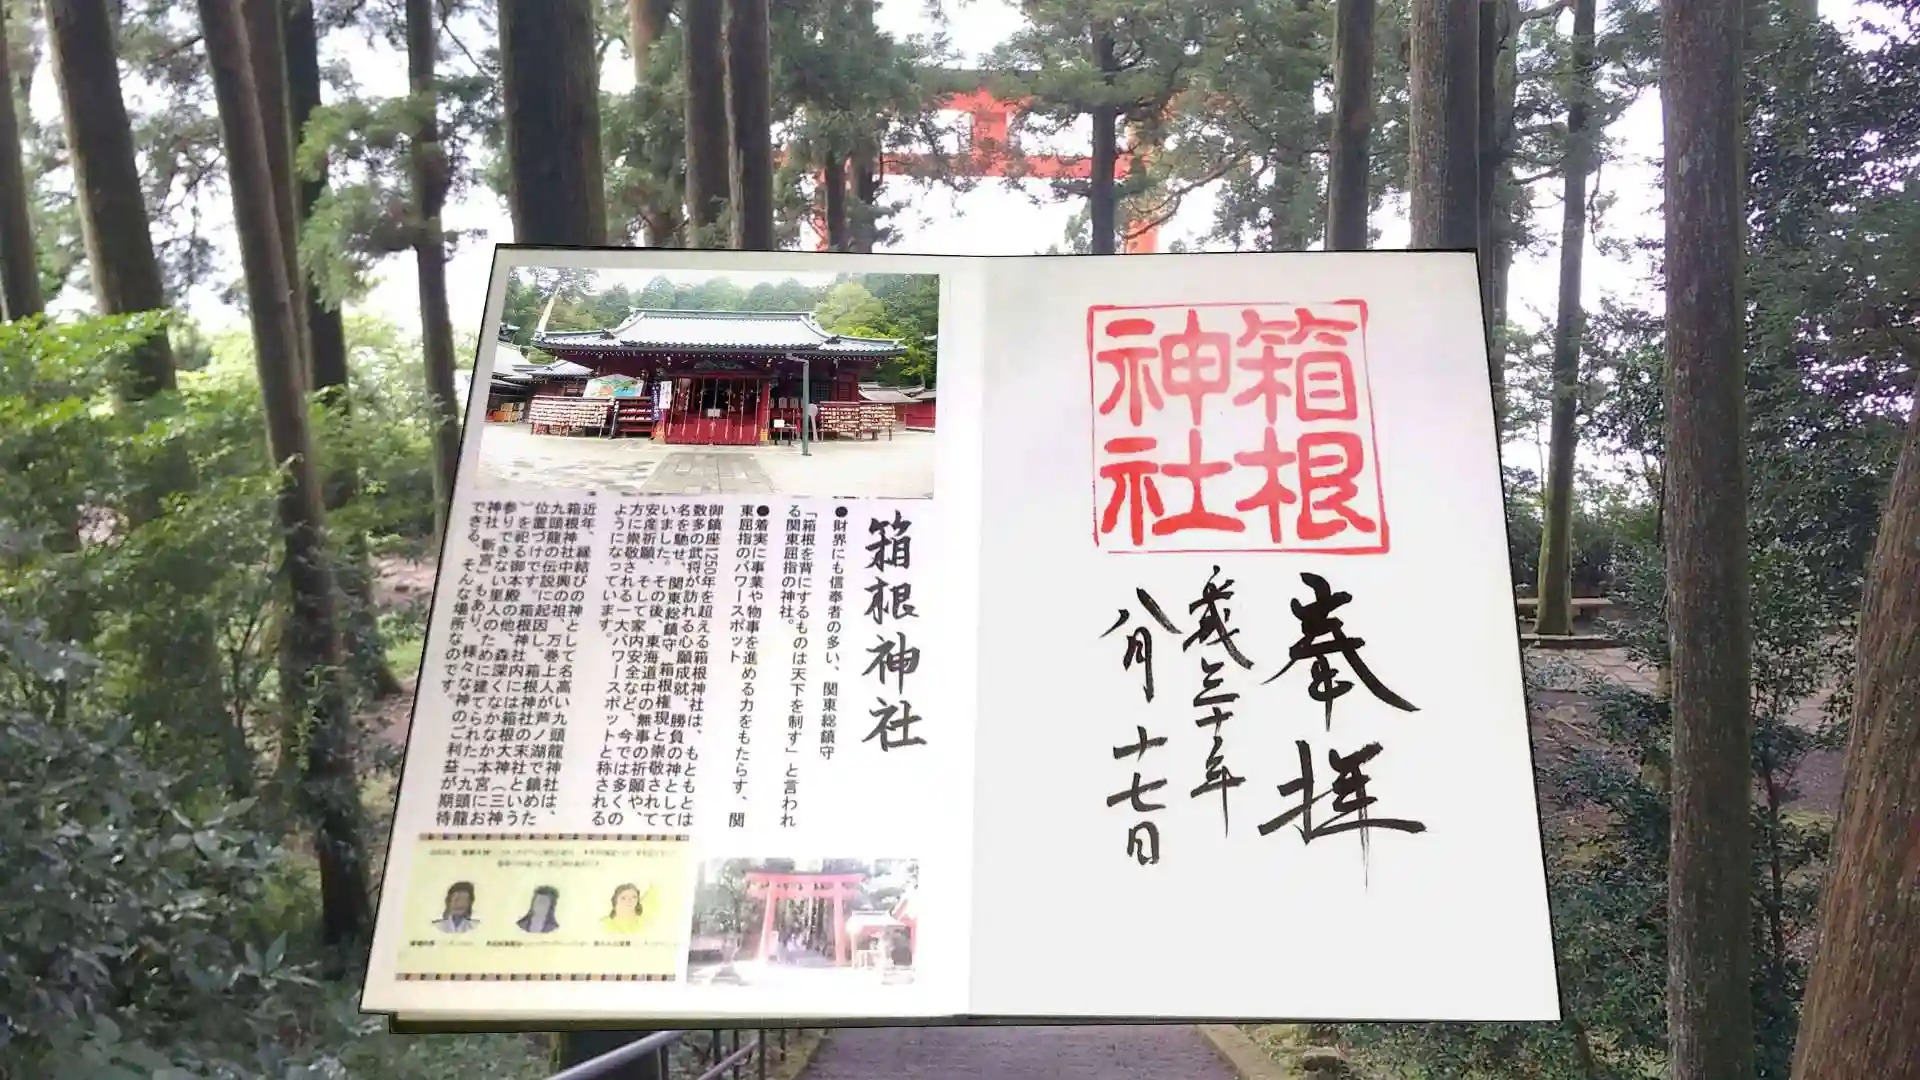 箱根
神社
奉拝
歳三十年
八月十七日
箱根神社
●財界にも信奉者の多い、関東総鎮守
「箱根を背にするものは天下を制す」と言われ
る関東屈指の神社。
●着実に事業や物事を進める力をもたらす、関
東屈指のパワースポット
御鎮座1250年を超える箱根神社は、もともとは
数多の武将が訪れる心願成就、勝負の神として
名を馳せ、関東総鎮守　箱根権現と崇敬されて
いました。その後、東海道中の無事の祈願や、
安産祈願、そして家内安全など、今では多くの
方に崇敬される一大パワースポットと称される
ようになっています。
近年、縁結びの神として名高い九頭龍神社は、
箱根神社中興の祖、万巻上人が芦ノ湖で鎮めた
九頭龍の伝説に起因し、箱根神社の末社という
位置づけです。箱根神社内には箱根大神（三神
）を祀る御本殿の他、森深くなかなか本宮にお
参りできない里人のために建てられた「九頭龍
神社　新宮」もあり、様々な神のご利益が期待
できる、そんな場所なのです。